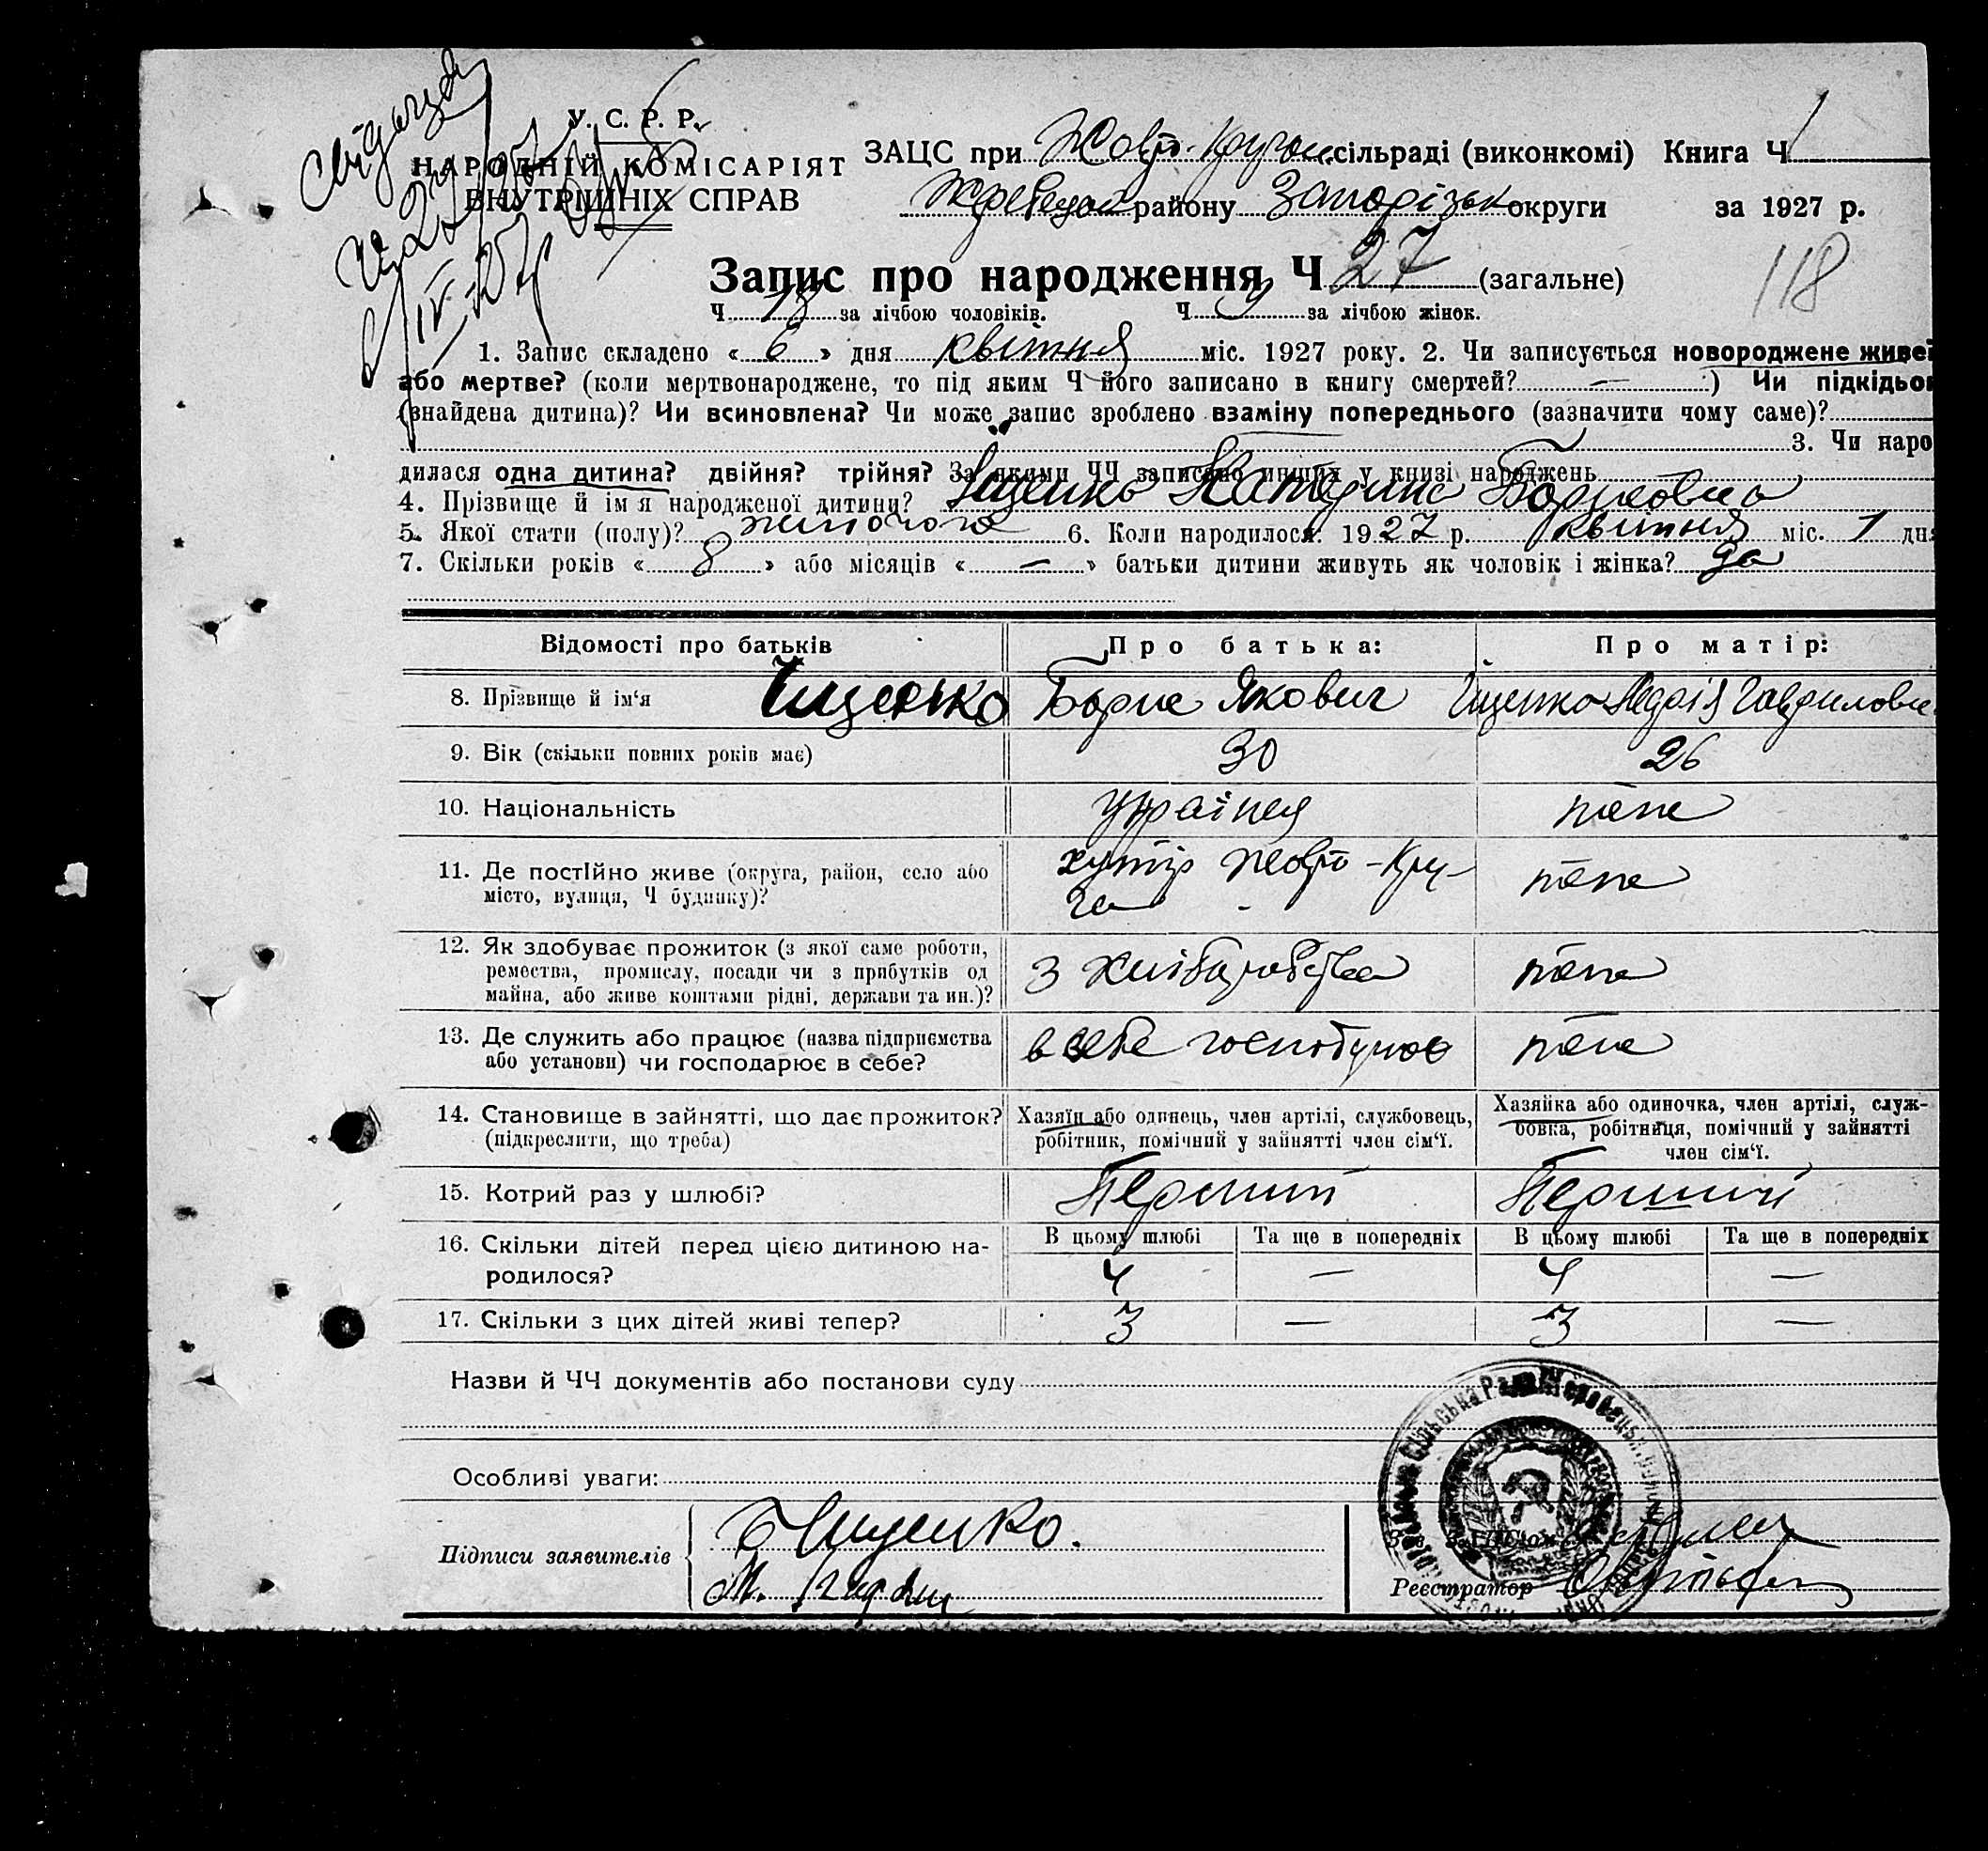 У. С. Р. Р.
НАРОДНІЙ КОМІСАРІЯТ
ВНУТРІШНІХ СПРАВ
ЗАЦС при Жовто-Круган. сільраді (виконкомі) Книга Ч 1
району Запорізьк округи за 1927 р.
Запис про народження, Ч 27 (загальне)
118
Ч 18 за лічбою чоловіків. Ч 9 за лічбою жінок.
1. Запис складено « 6 » дня квітня міс. 1927 року. 2. Чи записується новороджене живе
або мертве? (коли мертвонароджене, то під яким Ч його записано в книгу смертей? — ) Чи підкідьо
(знайдена дитина)? Чи всиновлена? Чи може запис зроблено взаміну попереднього (зазначити чому саме)?
3. Чи наро
дилася одна дитина? двійня? трійня? За якими ЧЧ записано инших у книзі народжень —
4. Прізвище й імя народженої дитини? Іщенко Катерина Борисовна
5. Якої стати (полу)? жиночога 6. Коли народилося: 1927 р. квітня міс. 1 дня
7. Скільки років « 8 » або місяців « — » батьки дитини живуть як чоловік і жінка? да
Відомості про батьків Про батька: Про матір:
8. Прізвище й ім‘я Іщенко Борис Якович Іщенко Марія Гавриловн
9. Вік (скільки повних років має) 30 26
10. Національність україней теж
11. Де постійно живе (округа, район, село або хутір Жовто-Кру-
місто, вулиця, Ч будинку)? га
12. Як здобуває прожиток (з якої саме роботи,
ремества, промислу, посади чи з прибутків од з хлібаробства
майна, або живе коштами рідні, держави та ин.)?
13. Де служить або працює (назва підприємства в себе господуює
або установи) чи господарює в себе?
14. Становище в зайнятті, що дає прожиток? Хазяїн або одинець, член артілі, службовець, Хазяйка або одиночка, член артілі, служ-
(підкреслити, що треба) робітник, помічний у зайнятті член сім‘ї. бовка, робітниця, помічний у зайнятті
член сім‘ї.
15. Котрий раз у шлюбі? Перший Перший
16. Скільки дітей перед цією дитиною на- В цьому шлюбі Та ще в попередніх В цьому шлюбі Та ще в попередніх
родилося? 4 — 4 —
17. Скільки з цих дітей живі тепер? 3 — 3 —
Назви й ЧЧ документів або постанови суду
Особливі уваги:
Підписи заявителів Б Ищенко.
М.
Реєстратор